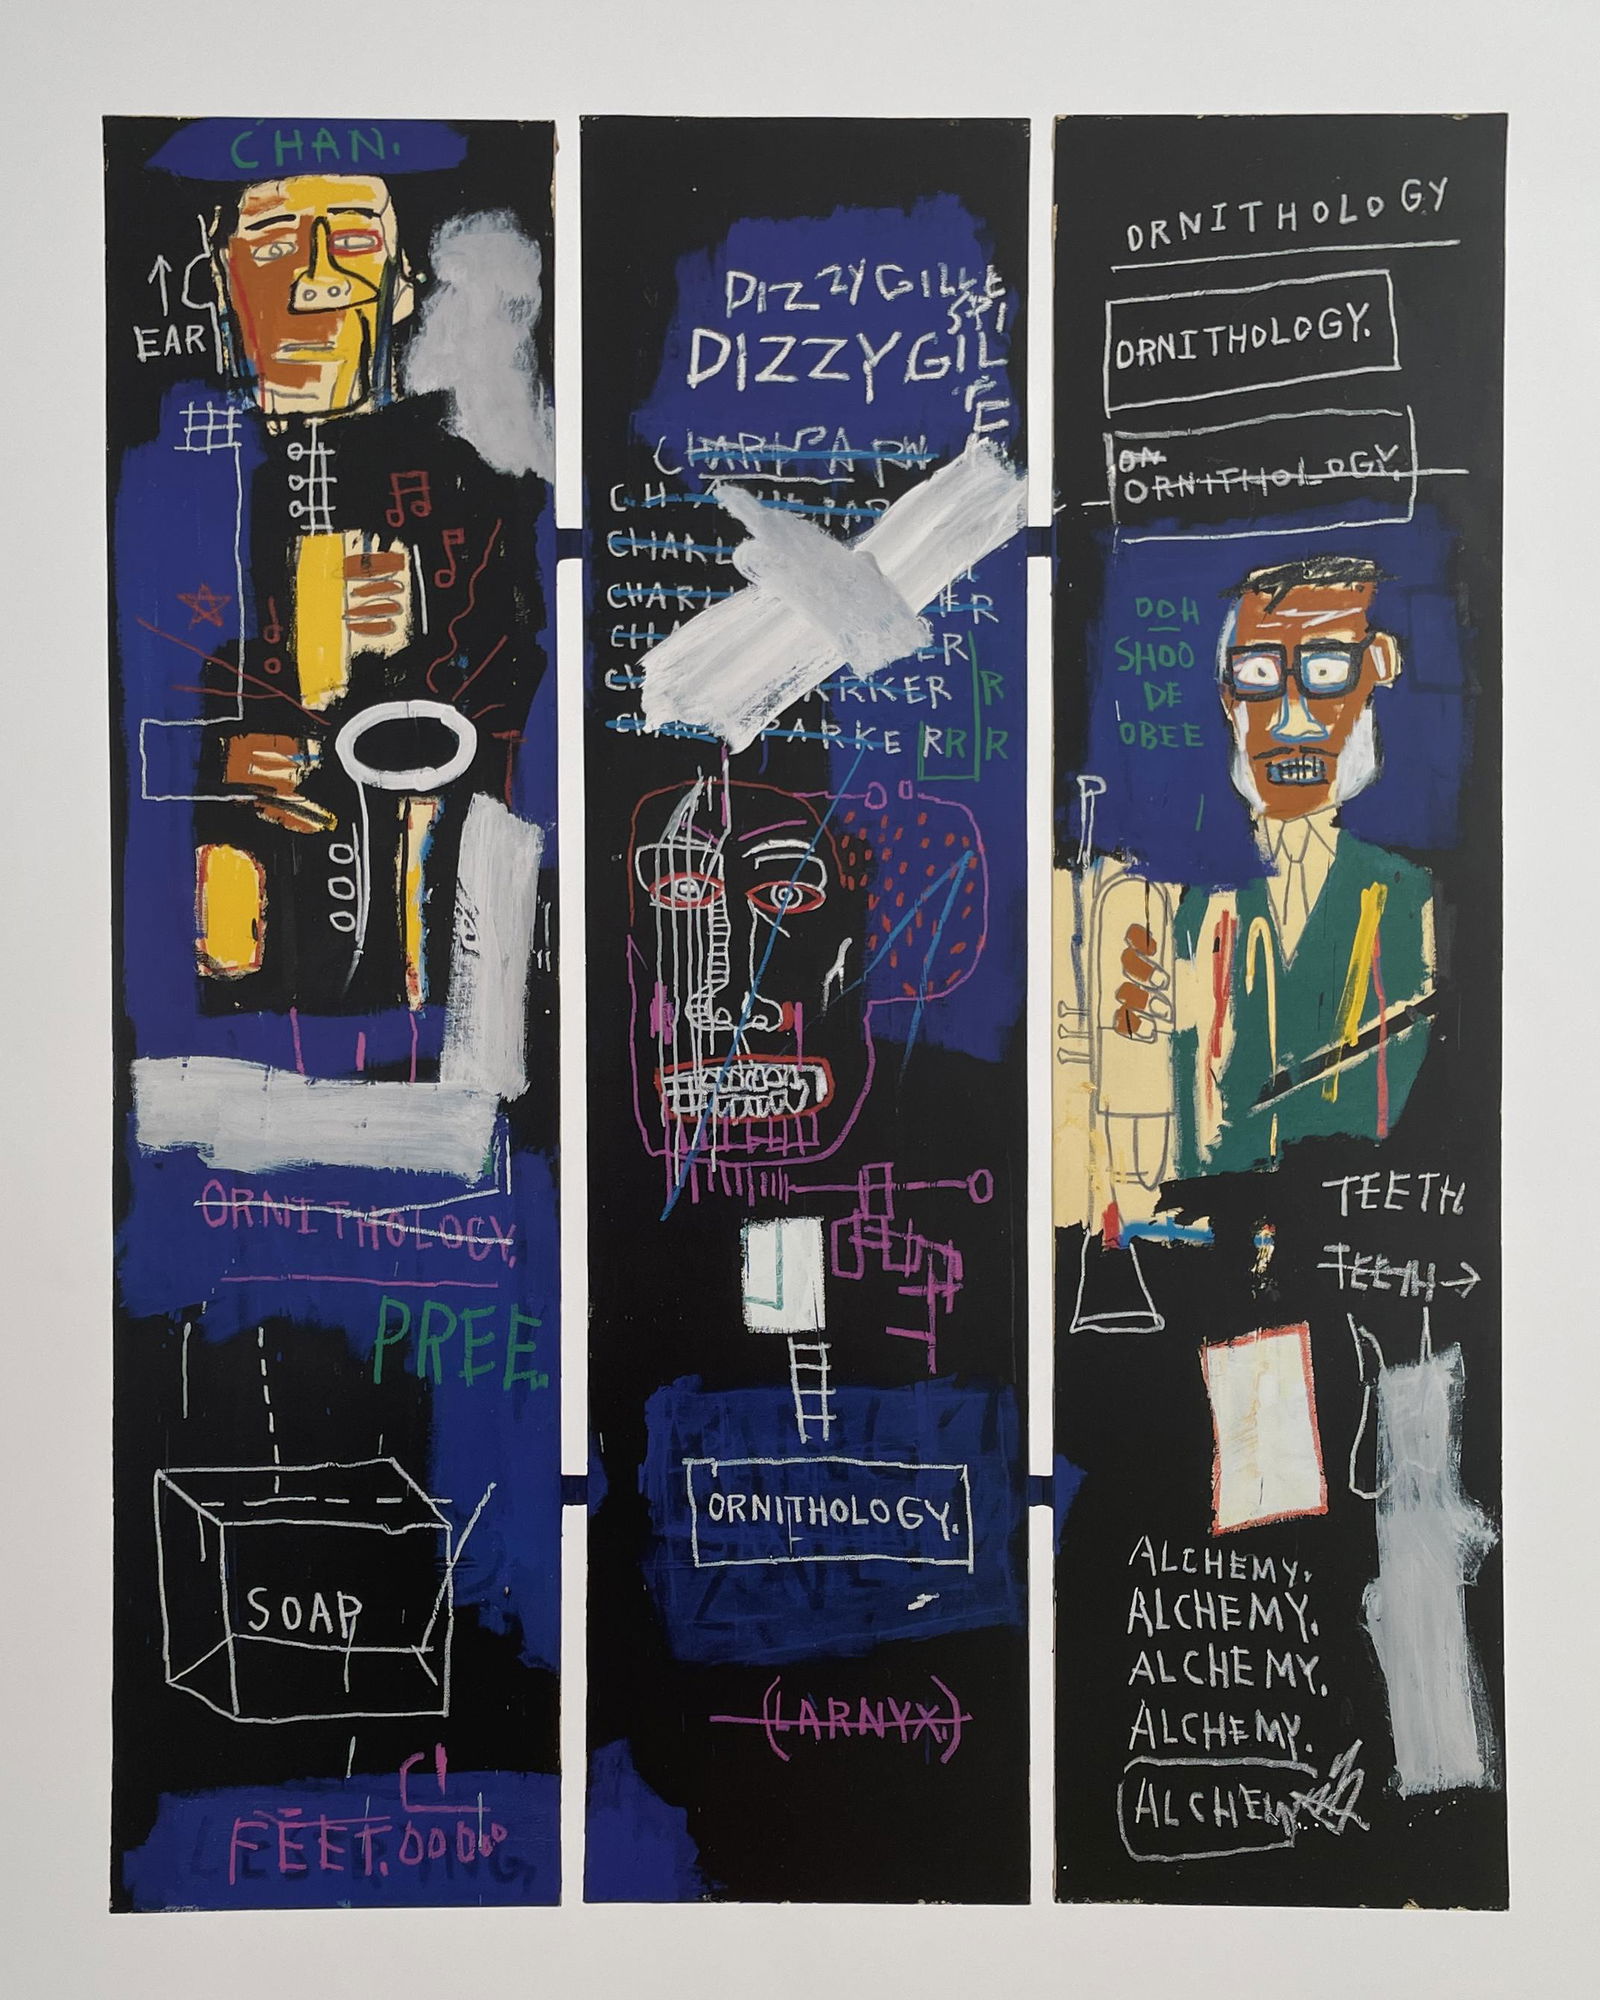 CHAN.
EAR
ORNITHOLOGY.
PREE.
SOAP
FEET.
DIZZYGILLE
SPI
DIZZYGIL
E
CHARL
CHARL
ER
ER
PARKER
R
PARKERR
R
ORNITHOLOGY.
(LARNYX.)
ORNITHOLOGY
ORNITHOLOGY.
ON
ORNITHOLOGY.
OOH
SHOO
DE
OBEE
TEETH
TEETH→
ALCHEMY.
ALCHEMY.
ALCHEMY.
ALCHEMY.